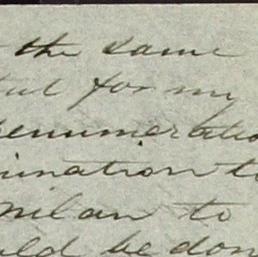 the same
for my
renumeratio
ination to
milan to
uld be don